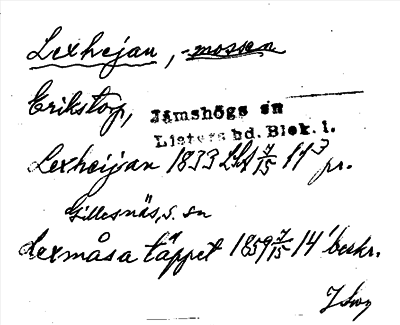 Lexhejan, -mossen
Erikstorp, Jämshögs sn
Listers hd. Blek. l.
Lexheijan 1833 LSA 7/15 11³ pr.
Gillesnäs, s. sn
Lexmåsa täppet 1859 7/15 14¹ beskr.